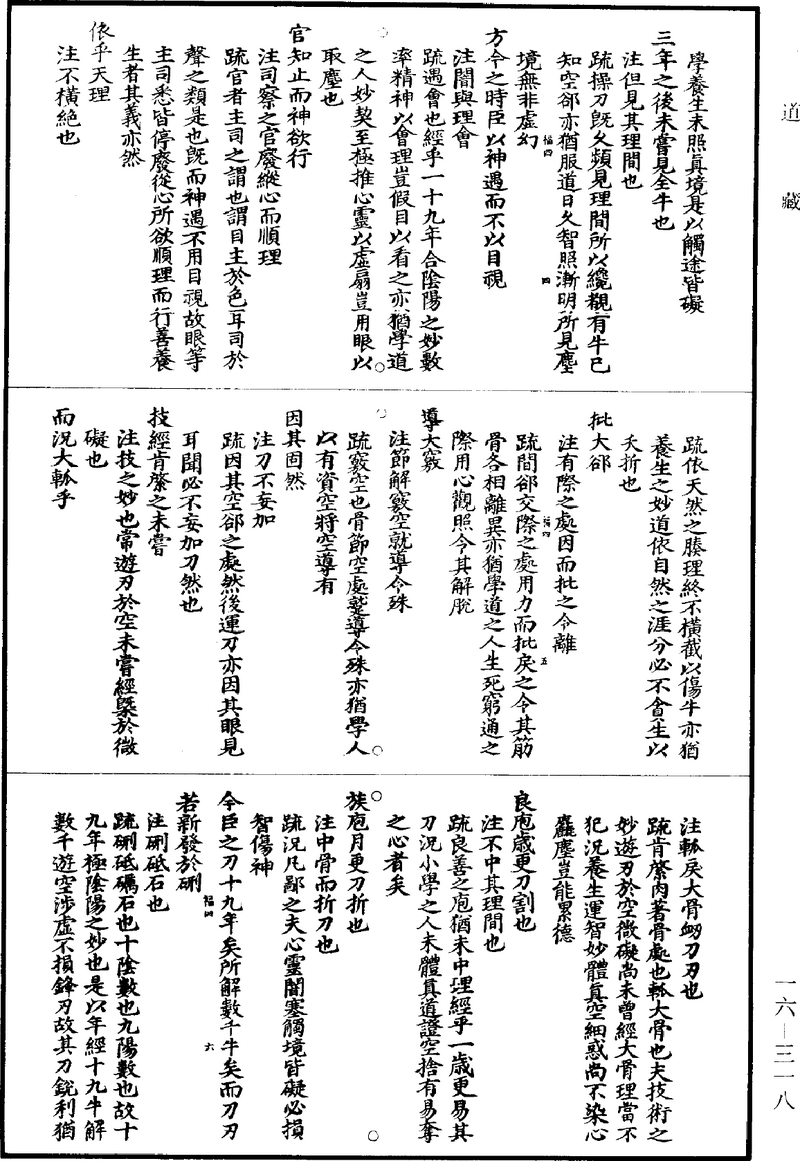 道藏
學養生未照真境是以觸途皆礙
三年之後未嘗見全牛也
注但見其理間也
䟽操刀既久頻見理間所以纔覩有牛已
知空郤亦猶服道日久智照漸明所見塵
境無非虛幻
福四 四
方今之時臣以神遇而不以目視
注闇與理會
䟽遇會也經乎一十九年合陰陽之妙數
率精神以會理豈假目以看之亦猶學道
之人妙契至極推心靈以虛扇豈用眼以
取塵也
官知止而神欲行
注司察之官廢縱心而順理
䟽官者主司之謂也謂目主於色耳司於
聲之類是也既而神遇不用目視故眼等
主司悉皆停廢從心所欲順理而行善養
生者其義亦然
依乎天理
注不橫絶也
䟽依天然之腠理終不橫截以傷牛亦猶
養生之妙道依自然之涯分必不貪生以
夭折也
批大郤
注有際之處因而批之令離
䟽間郤交際之處用刀而批戾之令其筋
福四 五
骨各相離異亦猶學道之人生死窮通之
際用心觀照令其解脫
導大窾
注節解窾空就導令殊
䟽窾空也骨節空處蹵導令殊亦猶學人
以有資空將空導有
因其固然
注刀不妄加
䟽因其空郤之處然後運刀亦因其眼見
耳聞必不妄加刀然也
技經肯綮之未嘗
注技之妙也常遊刃於空未嘗經槩於微
礙也
而況大軱乎
注軱戾大骨衂刀刃也
䟽肯綮肉著骨處也軱大骨也夫技術之
妙遊刃於空微礙尚未曾經大骨理當不
犯況養生運智妙體真空細惑尚不染心
麤塵豈能累德
良庖歲更刀割也
注不中其理間也
䟽良善之庖猶未中理經乎一歲更易其
刀況小學之人未體真道證空捨有易奪
之心者矣
族庖月更刀折也
注中骨而折刀也
䟽況凡鄙之夫心靈闇塞觸境皆礙必損
智傷神
今臣之刀十九年矣所解數千牛矣而刀刃
福四 六
若新發於硎
注硎砥石也
䟽硎砥礪石也十陰數也九陽數也故十
九年極陰陽之妙也是以年經十九牛解
數千遊空涉虛不損鋒刃故其刀銳利猶
一六—三一八